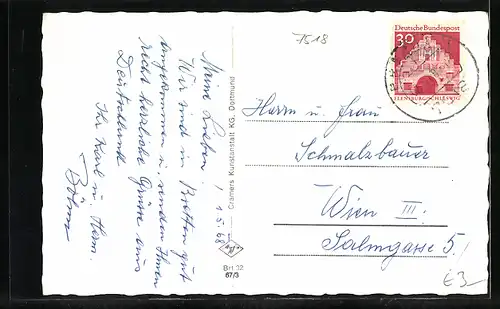 7518
Deutsche Bundespost
30
FLENSBURG/SCHLESWIG
1.5.68
Meine Lieben!
Wir sind in Bretten gut
angekommen u. senden Ihnen
recht herzliche Grüsse aus
Deutschland
Ihr Karl u. Ham.
Böhm
Cramers Kunstanstalt KG. Dortmund
Brt 32
67/3
Herrn u. Frau
Schmalzbauer
Wien III.
Salmgasse 5.
€3